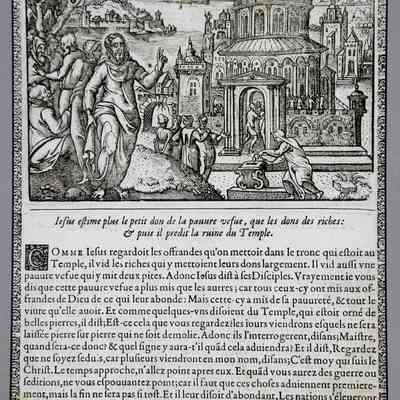 Iesus estime plus le petit don de la pauure vefue, que les dons des riches:
& puis il predit la ruine du Temple.
COMME Iesus regardoit les offrandes qu'on mettoit dans le tronc qui estoit au
Temple, il vid les riches qui y mettoient leurs dons largement. Il vid aussi vne
pauure vefue qui y mit deux pites. Adonc Iesus dist à ses Disciples. Vrayement ie vous
dis que cette pauure vefue a plus mis que les autres; car tous ceux-cy ont mis aux of-
frandes de Dieu de ce qui leur abonde: Mais cette-cy a mis de sa pauureté, & tout le
viure qu'elle auoit. Et comme quelques-vns disoient du Temple, qui estoit orné de
belles pierres, il dist; Est-ce cela que vous regardez? les iours viendront esquels ne sera
laissée pierre sur pierre qui ne soit demolie. Adonc ils l'interrogerent, disans; Maistre,
quand sera-ce donc? & quel signe y aura-t'il quād cela aduiendra? Et il dist, Regardez
que ne soyez sedu.s, car plusieurs viendront en mon nom, disans; C'est moy qui suis le
Christ. Le temps approche, n'allez point apres eux. Et quād vous aurez des guerre ou
seditions, ne vous espouuantez point; car il faut que ces choses aduiennent premiere-
ment, mais la fin ne sera pas si tost. Et il leur disoit d'abondant, Les nations s'éleueront